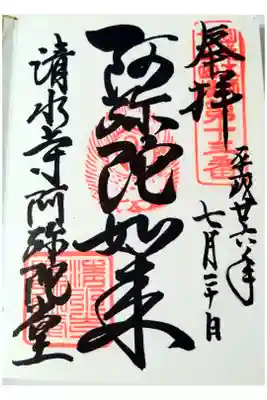 奉拝
第十三番
平成廿六年
七月二十日
阿弥陀如来
清水寺阿弥陀堂